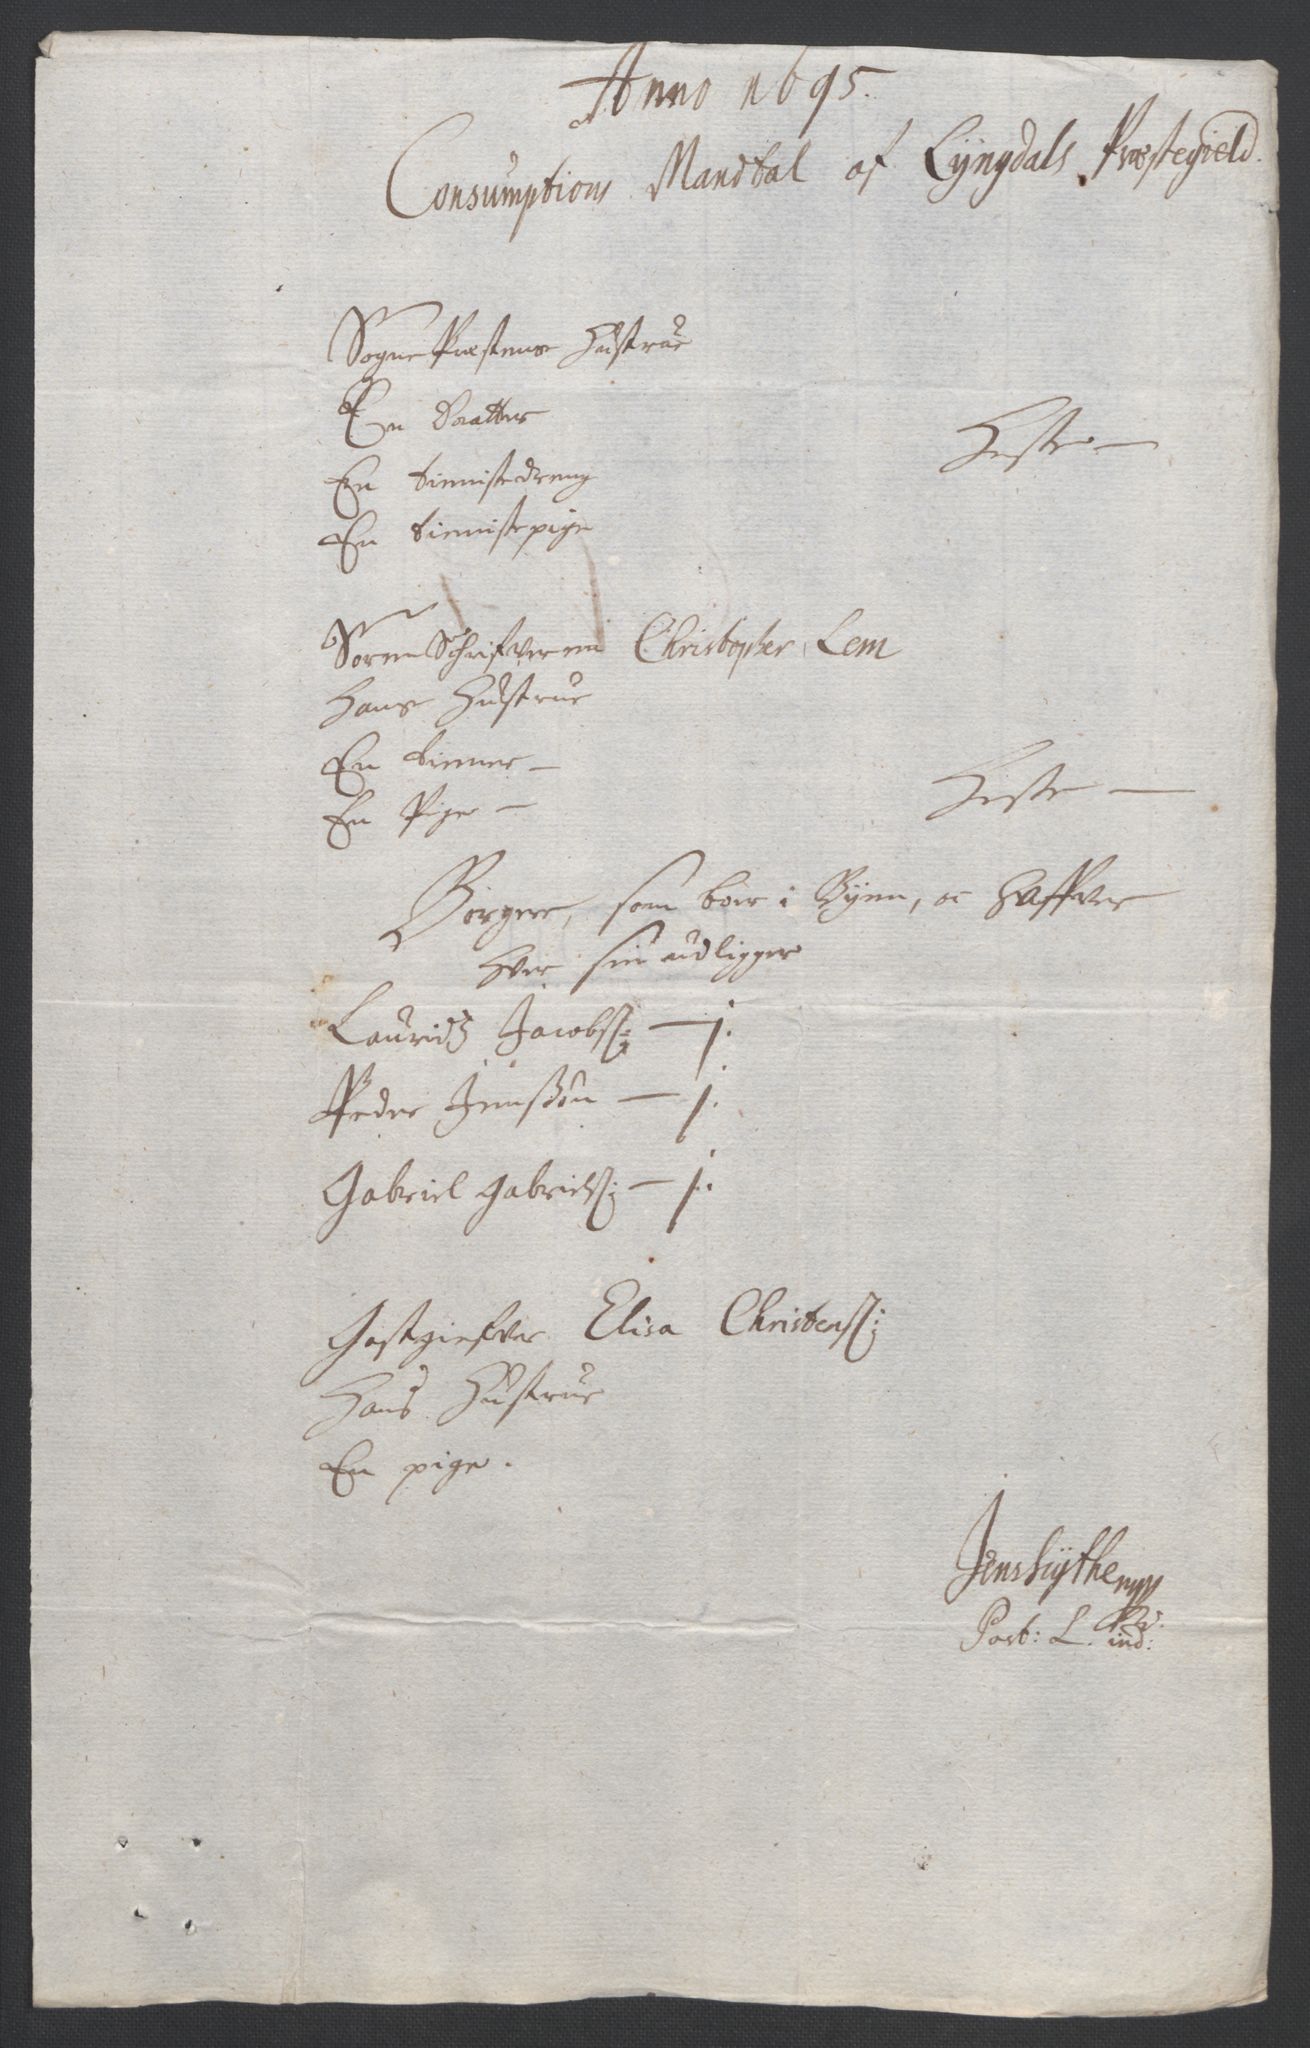 Anno 1695.
Consumptions Mandtal af Lyngdals Præstegield.
Sogne Præstens Hustrue
En Daatter
Heste —
En tienniste dreng
En tienniste pige
Sorenschrifveren Christopher Lem
Hans Hustrue
En tienner —
Heste —
En Pige —
Borgere, som boer i Byen, oc haffver
hver sin udligger
Lauridtz Jacobsß: — 1.
Peder Jensßøn — 1.
Gabriel Gabrielsß: — 1.
Gestgiefver Elisa Christensß:
Hans Hustrue
En pige.
Past: L. ind: